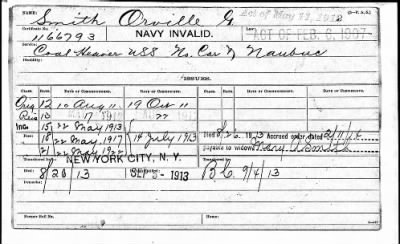 NAME: Smith Orville G. Act of May 11, 1912 (3-V.A.S.)
Certificate No.: 1166793 NAVY INVALID. Law: ACT OF FEB. 6, 1907
Service: Coal Heaver USS No. Car & Naubuc
ISSUES.
CLASS. RATE. DATE OF COMMENCEMENT. DATE OF CERTIFICATE. CLASS. RATE. DATE OF COMMENCEMENT. DATE OF CERTIFICATE.
Orig 12 10 Aug 11 19 Oct 11
Reis 13 17 22
Inc 15 22 May 1913
18 22 May 1917 14 July 1913 Died 8/20/13 Accrued order dated 2/11/14
21 22 May 1922 payable to widow Mary A Smith
Transferred to NEW YORK CITY, N.Y.
Died 8/20/13 SEP 5 - 1913 B.C. 9/4/13
Former Roll No. Home